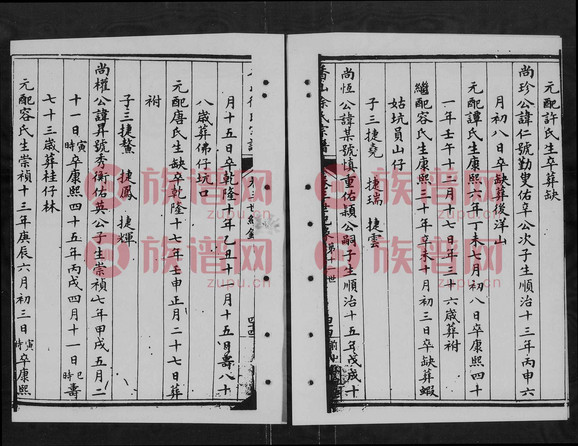 元配許氏生卒葬缺
尚珍公諱仁號勤叟佑阜公次子生順治十三年丙申六
月初八日卒缺葬後洋山
元配譚氏生康熙六年丁未七月初八日卒康熙四十
一年壬午十二月一七日年三十六歲葬祔
繼配容氏生康熙三十年辛未十月初三日卒缺葬蝦
姑坑員山仔
子三捷堯 捷瑞 捷雲
尚恆公諱某號慎重佑潁公嗣子生順治十五年戊戌十
香山徐氏宗譜
月十五日卒乾隆十年乙丑十月十五日壽八十
八歲葬佛仔坑口
元配唐氏生缺卒乾隆十七年壬申正月二十七日葬
祔
子三捷鰲 捷鳳 捷輝
尚權公諱昇號秀衡佑英公子生崇禎七年甲戌五月二
十一日寅時卒康熙四十五年丙戌四月十一日巳時壽
七十三歲葬桂仔林
元配容氏生崇禎十三年庚辰六月初三日寅時卒康熙
族谱网
zupu.cn
族谱网
zupu.cn
族谱网
zupu.cn
族谱网
zupu.cn